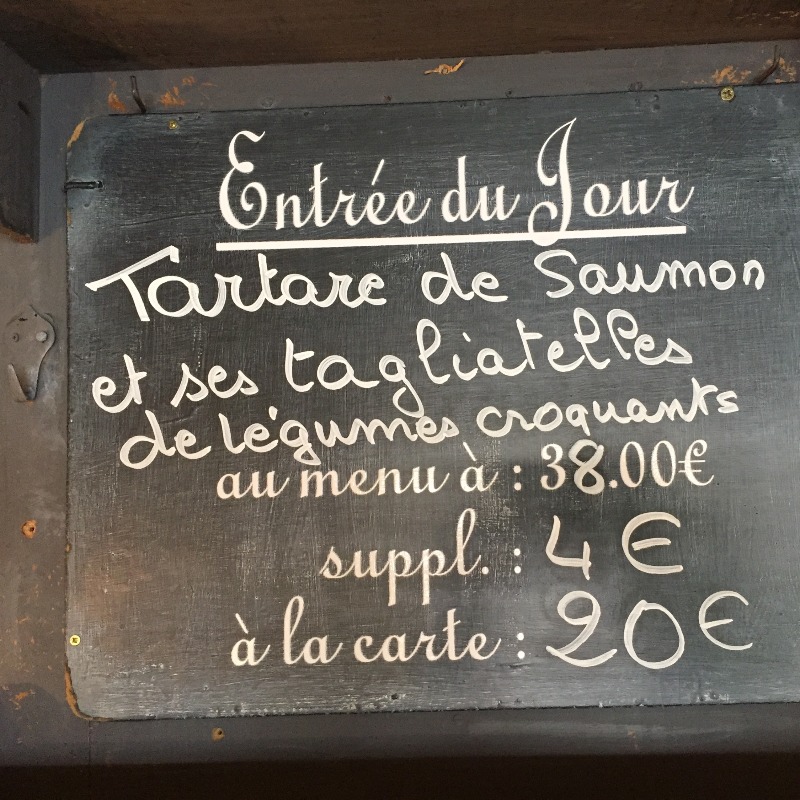 Entrée du Jour
Tartare de Saumon
et ses tagliatelles
de légumes croquants
au menu à : 38.00€
suppl. : 4 €
à la carte : 20 €